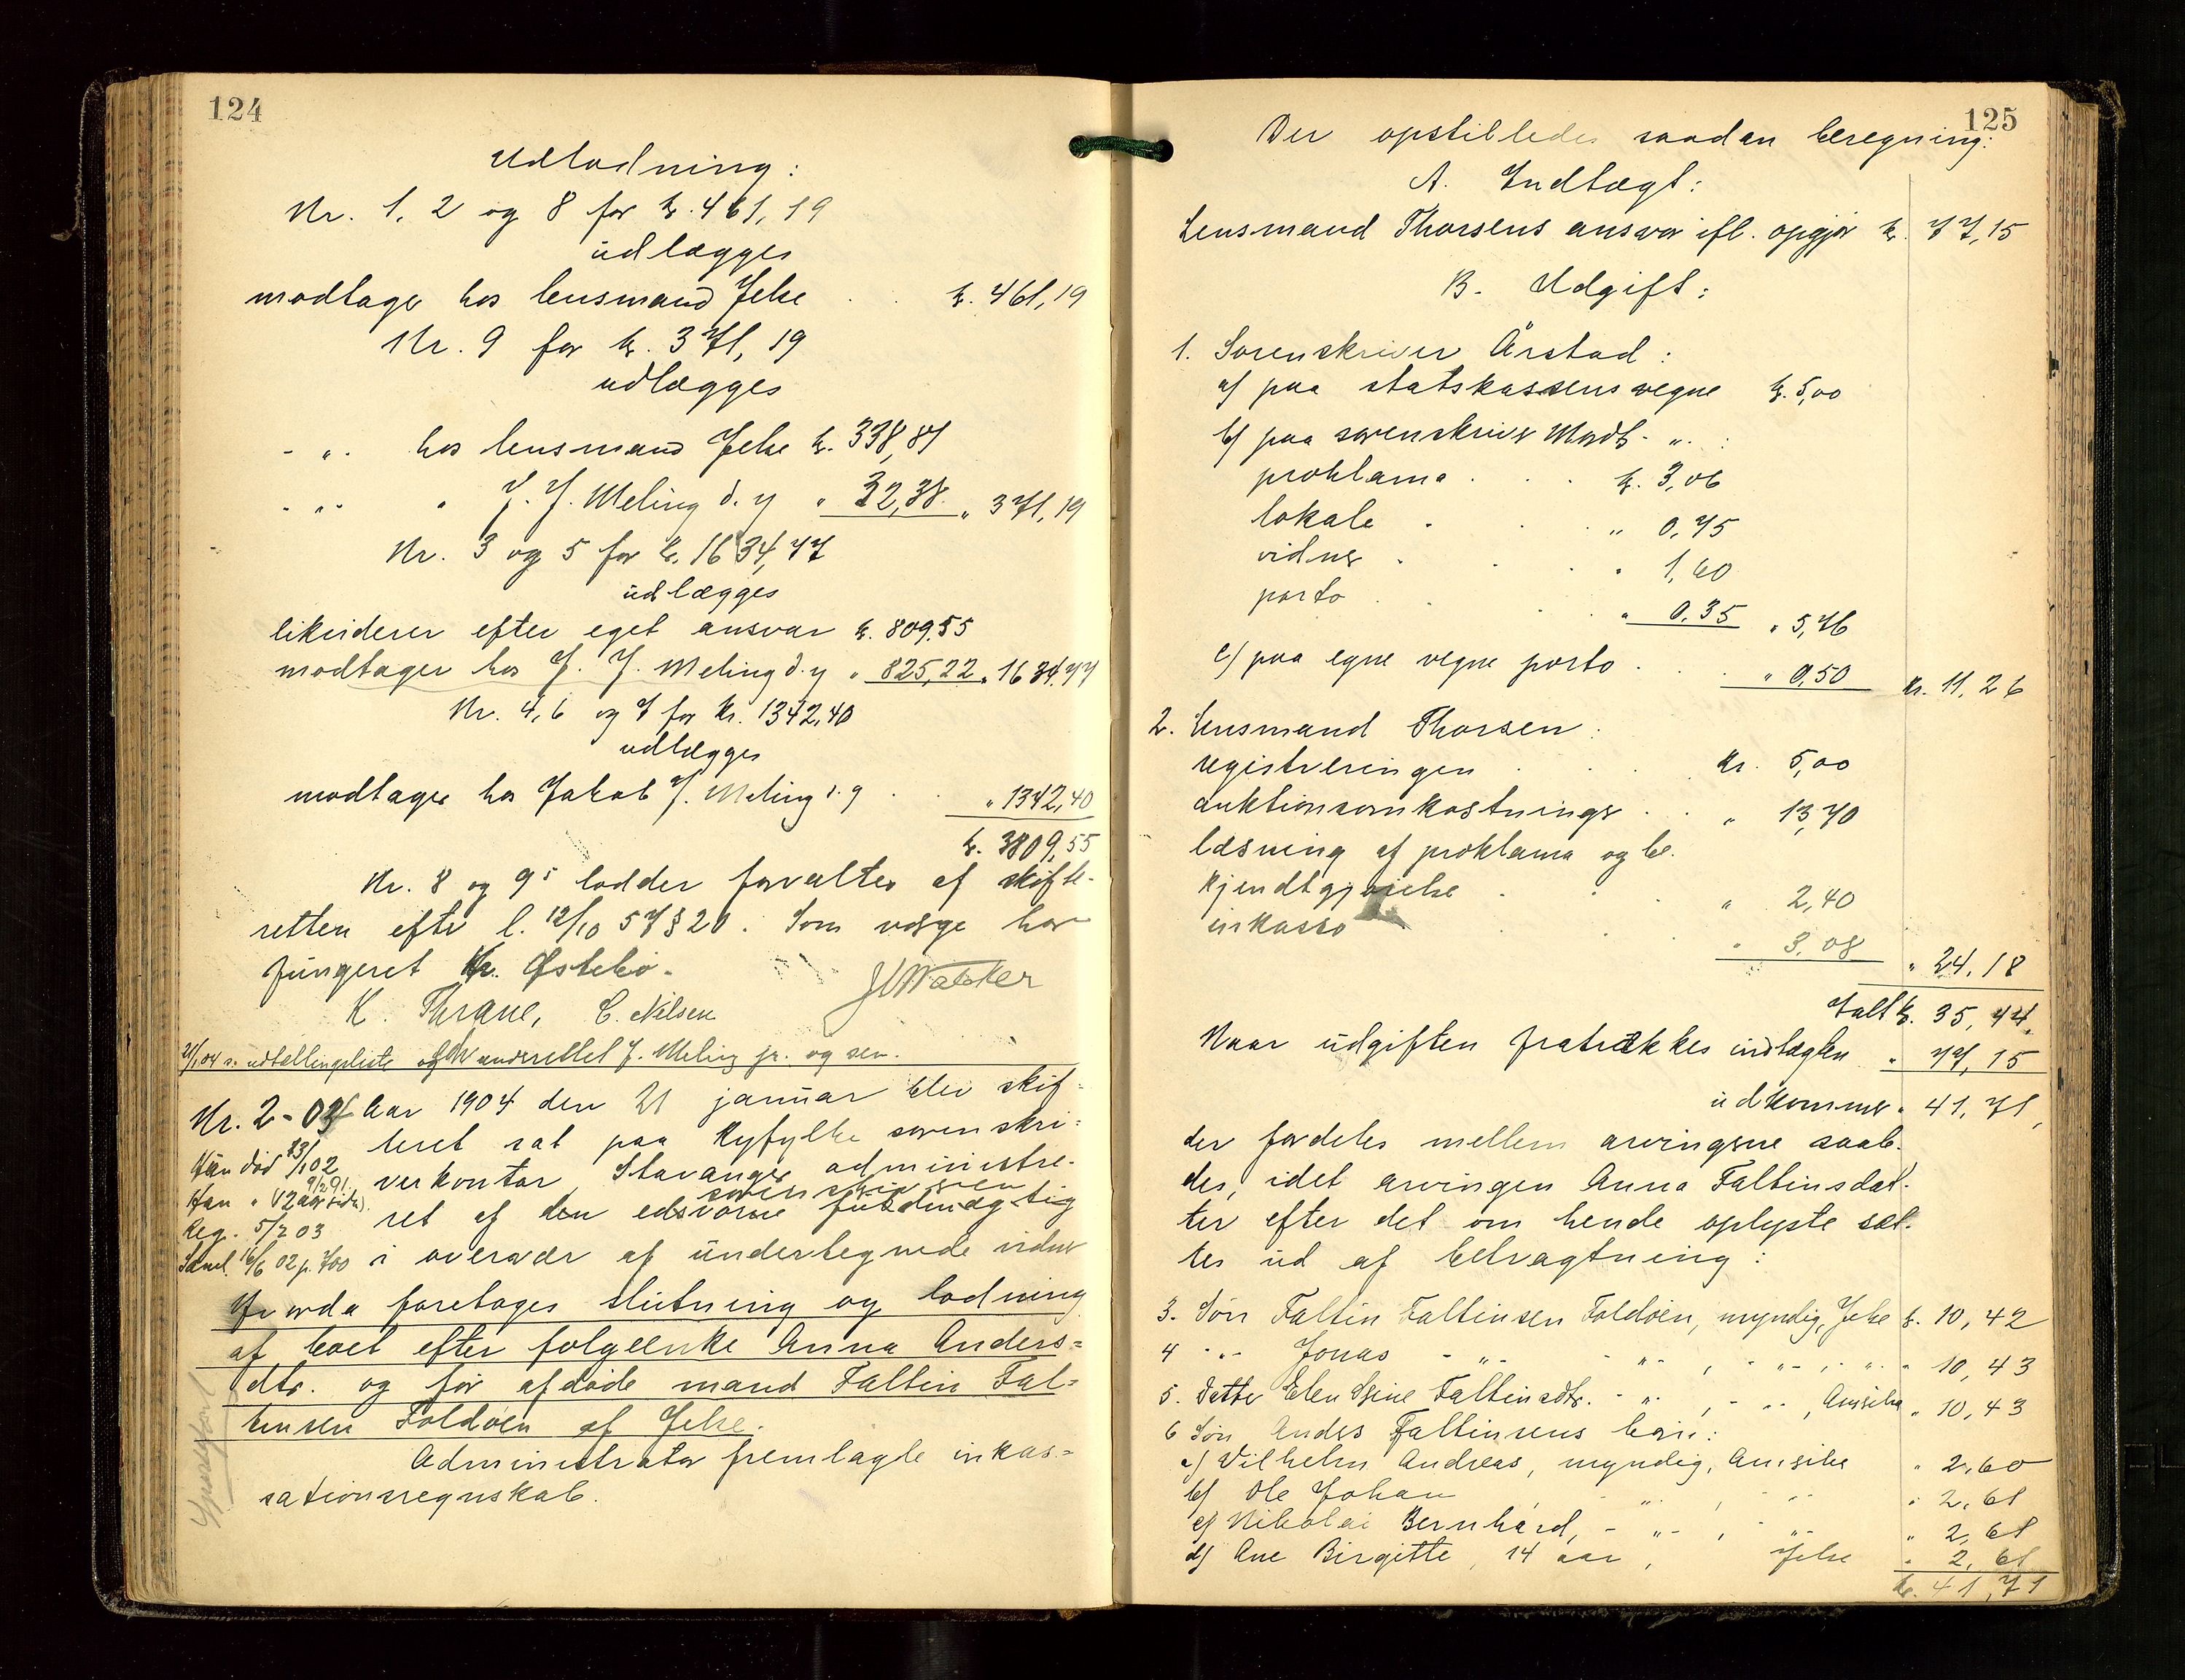 124
Udlodning:
Nr. 1, 2 og 8 for k. 461,19
udlægges
modtager hos lensmand Jelse . . k. 461,19
Nr. 9 for k. 371,19
udlægges
- " - hos lensmand Jelse k. 338,81
- " - " J. J. Meling d. y " 32,38 " 371,19
Nr. 3 og 5 for k. 1634,77
udlægges
likviderer efter eget ansvar k. 809,55
modtager hos J. J. Meling d. y " 825,22 " 1634,77
Nr. 4, 6 og 7 for kr. 1342,40
udlægges
modtager hos Jakob J. Meling d. y . . " 1342,40
k. 3809,55
Nr. 8 og 9s lodder forvaltes af skifte-
retten efter l. 12/10 57 § 20. Som værge har
fungeret Kr. Østebø.
K. Thrane, C. Nilsen
21/1 04 s. udtællingsliste og underrettet J. Meling jr. og sen.
Nr. 2 - 03 Aar 1904 den 21 januar blev skif-
teret sat paa Ryfylke sorenskri-
verkontor, Stavanger administre-
ret af den edsvorne fuldmægtig
sorenskriveren
i overvær af undertegnede vidner
Hun død 13/1 02
Han " (12 aar siden)
Reg. 5/2 03
Saml. 16/6 02 p. 700
Hvorda foretoges slutning og lodning
af boet efter følgeenke Anna Anders-
dtr. og før afdøde mand Faltin Fal-
tensen Foldøen af Jelse.
Administrator fremlagte inkas-
sationsregnskab.
125
Der opstilledes saadan beregning:
A. Indtægt:
Lensmand Thorsens ansvar ifl. opgjør k. 77,15
B. Udgift:
1. Sorenskriver Årstad:
a) paa statskassens vegne k. 5,00
b) paa sorenskriver Mordts - " - :
proklama . . . k. 3,06
lokale . . . " 0,75
vidner . . . " 1,60
porto . . . " 0,35 " 5,76
c) paa egne vegne porto . . . " 0,50 kr. 11,26
2. Lensmand Thorsen:
registreringen . . . kr. 5,00
auktionsomkostninger . . " 13,70
læsning af proklama og be-
kjendtgjørelse . . . " 2,40
inkasso . . . " 3,08 " 24,18
Ialt k. 35,44,
Naar udgiften fratrækkes indtægten " 77,15
udkommer " 41,71,
der fordeles mellem arvingerne saale-
des, idet arvingen Anna Faltinsdat-
ter efter det om hende oplyste sæt-
tes ud af betragtning:
3. Søn Faltin Faltinsen Foldøen, myndig, Jelse k. 10,42
4 - " - Jonas - " - - " - , - " - , - " - " 10,43
5. Datter Elen Sine Faltinsdtr. - " - , - " - , Amerika " 10,43
6 Søn Anders Faltinsens børn:
a) Vilhelm Andreas, myndig, Amerika " 2,60
b) Ole Johan , - " - , - " - " 2,61
c) Nikolai Bernhard, - " - , - " - " 2,61
d) Ane Birgitte, 14 aar, Jelse " 2,61
kr. 41,71